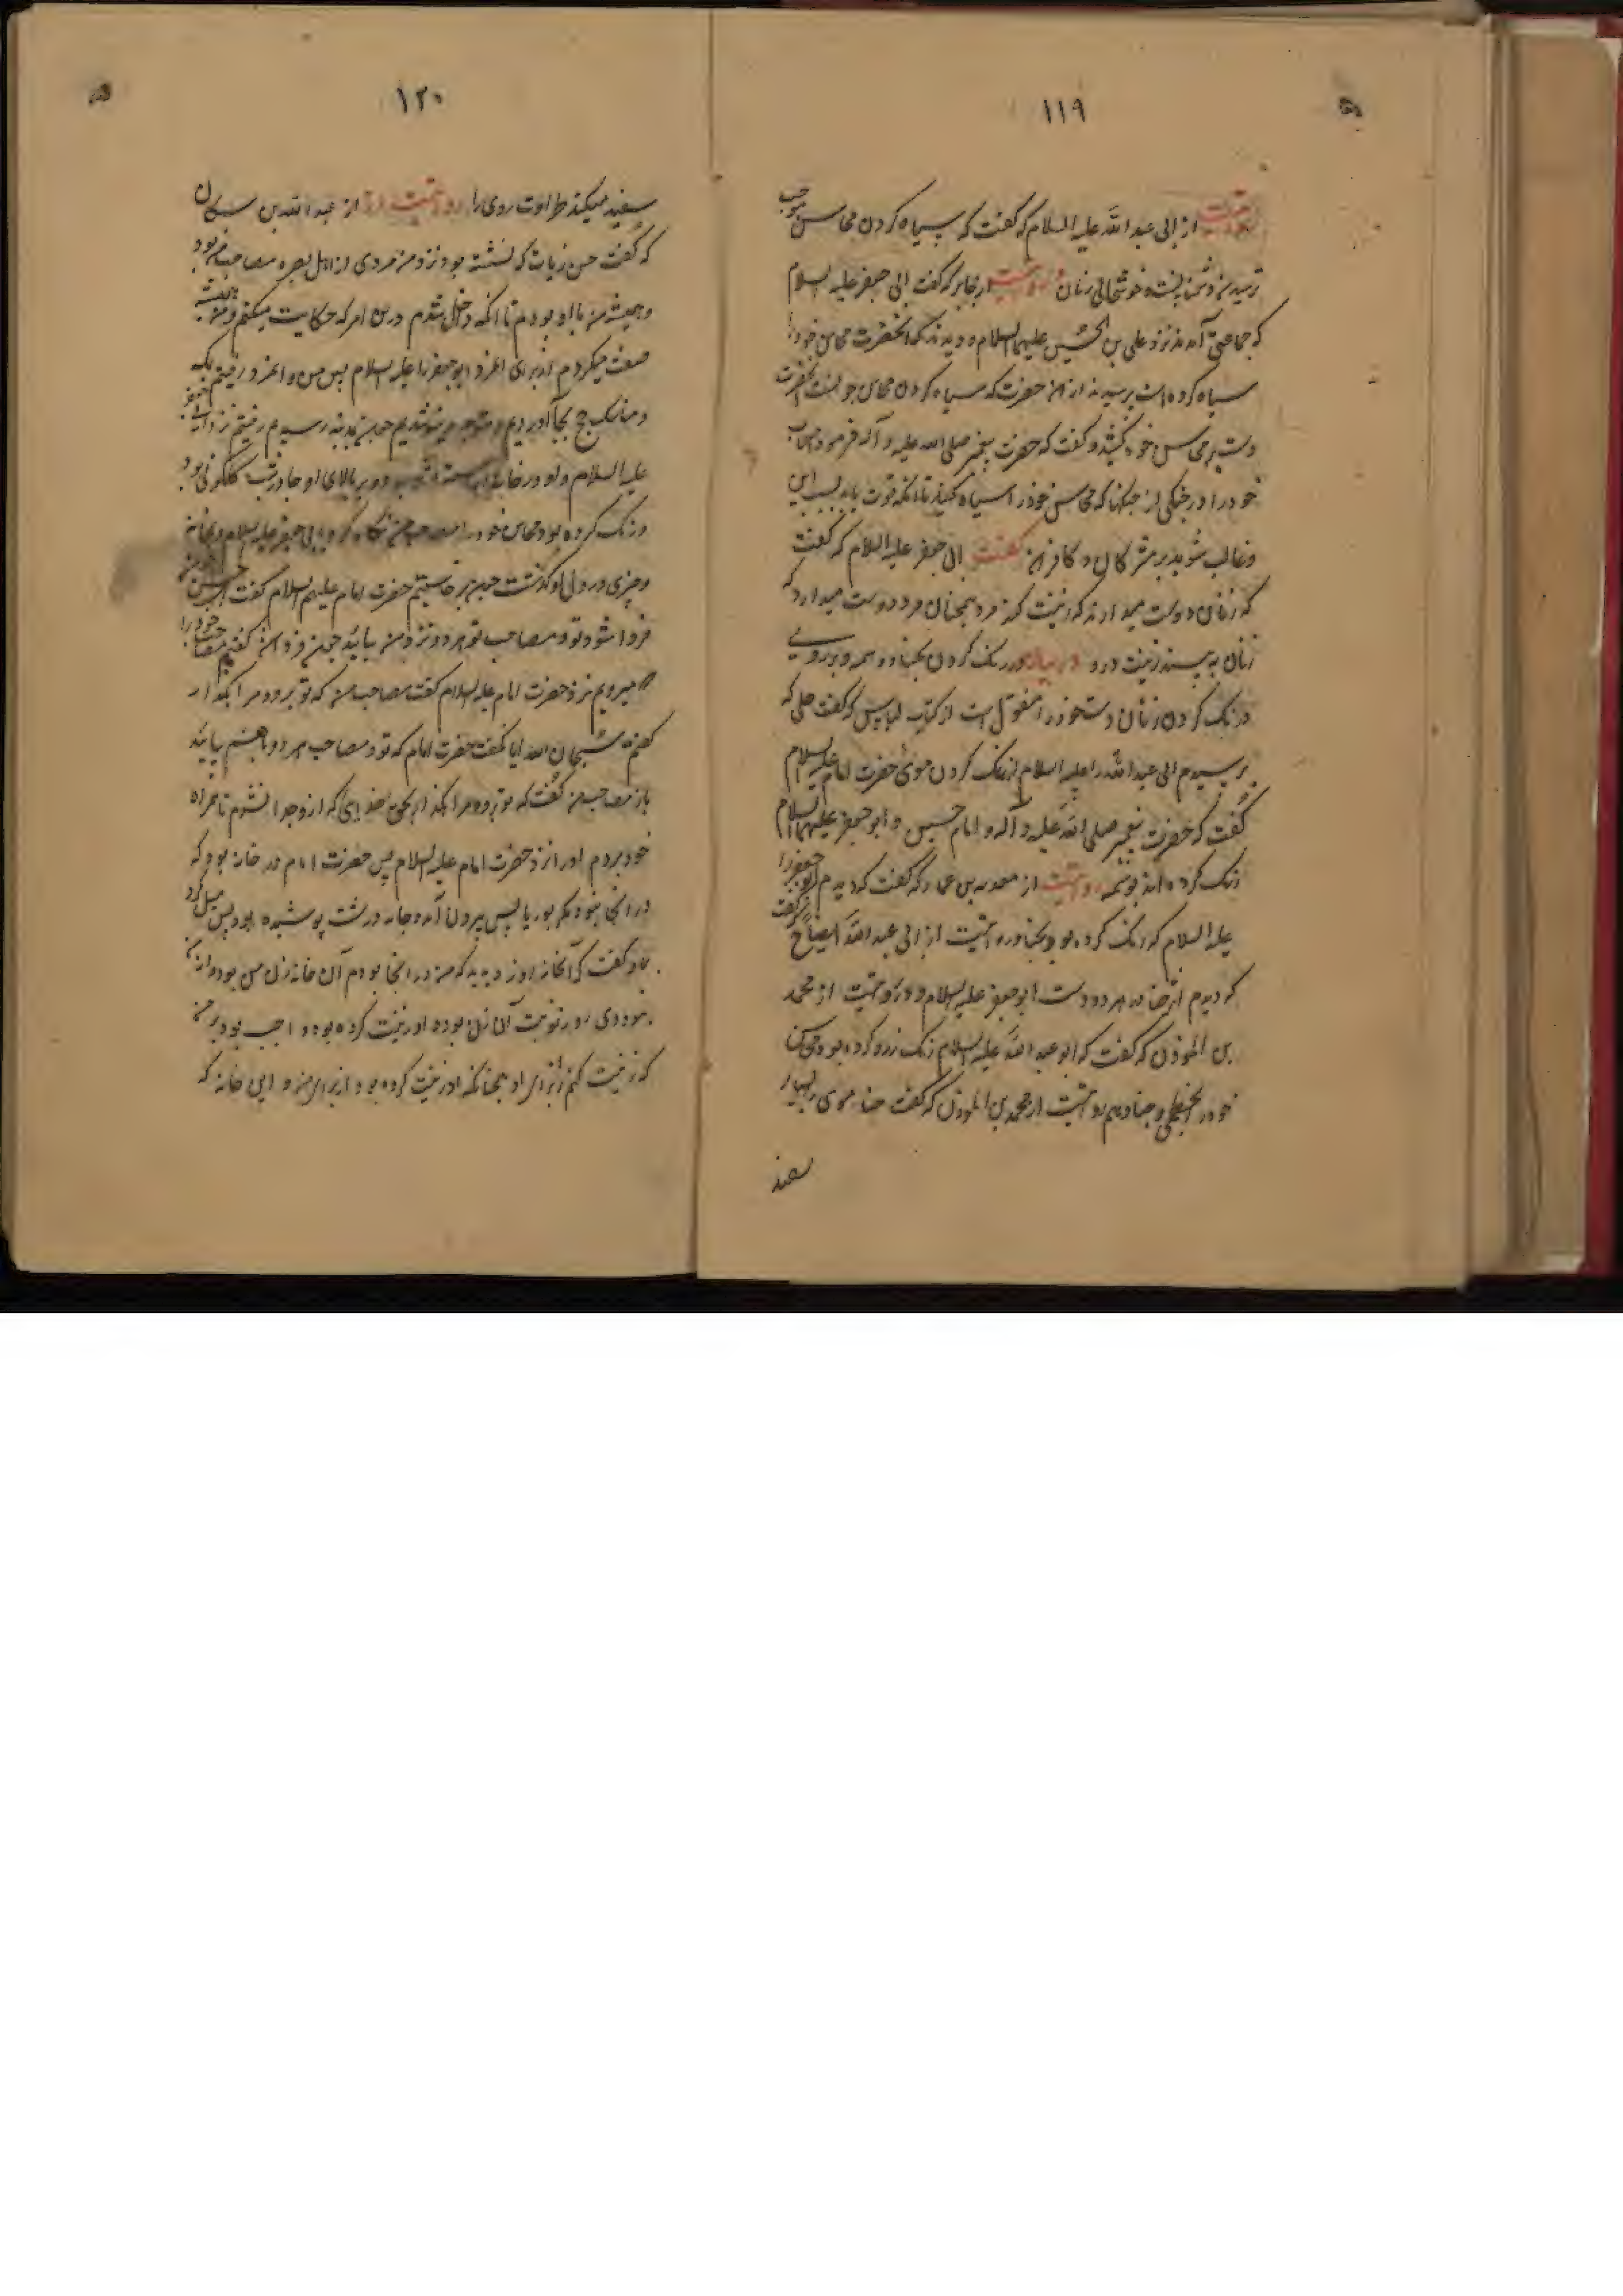 ۱۱۹
از ابی عبد الله علیه السلام که گفت که سیاه کردن محاسن موجب
ترسیدن دشمنانست و خوشحالی زنان روایتست از جابر که گفت ابی جعفر علیه السلام
که جماعتی آمدند نزد علی بن الحسین علیهما السلام و دیدند که آنحضرت محاسن خود را
سیاه کرده است پرسیدند از آن حضرت که سیاه کردن محاسن چونست آنحضرت
دست بر محاسن خود کشید و گفت که حضرت پیغمبر صلی الله علیه و آله فرمود اصحاب
خود را در جنگی از جنگها که محاسن خود را سیاه کنید تا آنکه قوت یابید بسبب این
و غالب شوید بر مشرکان و کافران گفت ابی جعفر علیه السلام که گفت
که زنان دوست میدارند که زینت کند مرد همچنان مرد دوست میدارد که
زنان به بیند زینت درو در بیان رنگ کردن بحنا و وسمه و بر روی
و رنگ کردن زنان دست خود را منقول است از کتاب لباس که گفت حلی که
پرسیدم ابی عبد الله را علیه السلام از رنگ کردن موی حضرت امام علیه السلام
گفت که حضرت پیغمبر صلی الله علیه و آله و امام حسین و ابو جعفر علیهما السلام
رنگ کرده اند بوسمه روایتست از معویه بن عمار که گفت که دیدم ابو جعفر را
علیه السلام که رنگ کرده بود بحنا و روایتست از ابی عبد الله ایضا که گفت
که دیدم اثر حنا در هر دو دست ابو جعفر علیه السلام و روایتست از محمد
بن الموذن که گفت که ابو عبد الله علیه السلام رنگ زرد کرده بود محاسن
خود را بخطمی و حنا و هم روایتست از محمد بن الموذن که گفت حنا موی را بسیار
سفید
۱۲۰
سفید میکند طراوت روی را روایتست از عبد الله بن سکان
که گفت حسن زیات که نشسته بود نزد من مردی از اهل بصره مصاحب من بود
و همیشه من با او بودم تا آنکه داخل شدم درین امر که حکایت میکنم و همیشه
صفت میکردم از برای آنمرد ابو جعفر را علیه السلام پس من و آنمرد رفتیم بمکه
و مناسک حج بجا آوردیم و متوجه مدینه شدیم چون بمدینه رسیدیم رفتیم نزد ابی جعفر
علیه السلام و او در خانه آراسته نشسته بود و بر بالای او چادر شب گلگونی بود
و رنگ کرده بود محاسن خود را مصاحب من نگاه کرد بابی جعفر علیه السلام و بخانه
و چیزی در دل او گذشت چون برخاستیم حضرت امام علیه السلام گفت ای حسن
فردا شود تو و مصاحب تو هر دو نزد من بیائید چون فردا شد گفتم مصاحب خود را
که میرویم نزد حضرت امام علیه السلام گفت مصاحب من که تو برو و مرا بگذار
گفتم سبحان الله ایا نگفت حضرت امام که تو و مصاحب هر دو باهم بیائید
باز مصاحب من گفت که تو برو و مرا بگذار بحق خدایی که ازو جدا نشدم تا همراه
خود بردم او را نزد حضرت امام علیه السلام پس حضرت امام در خانه بود که
در آنجا نبود مگر بوریا پس بیرون آمد و جامه درشت پوشیده بود پس میل کرد
باو گفت که آنخانه روز دیدید که من در آنجا بودم آن خانه زن من بود و از
دیروزی روز نوبت آن زن بود و او زینت کرده بود و واجب بود بر من
که زینت کنم از برای او همچنانکه او زینت کرده بود از برای من و این خانه که